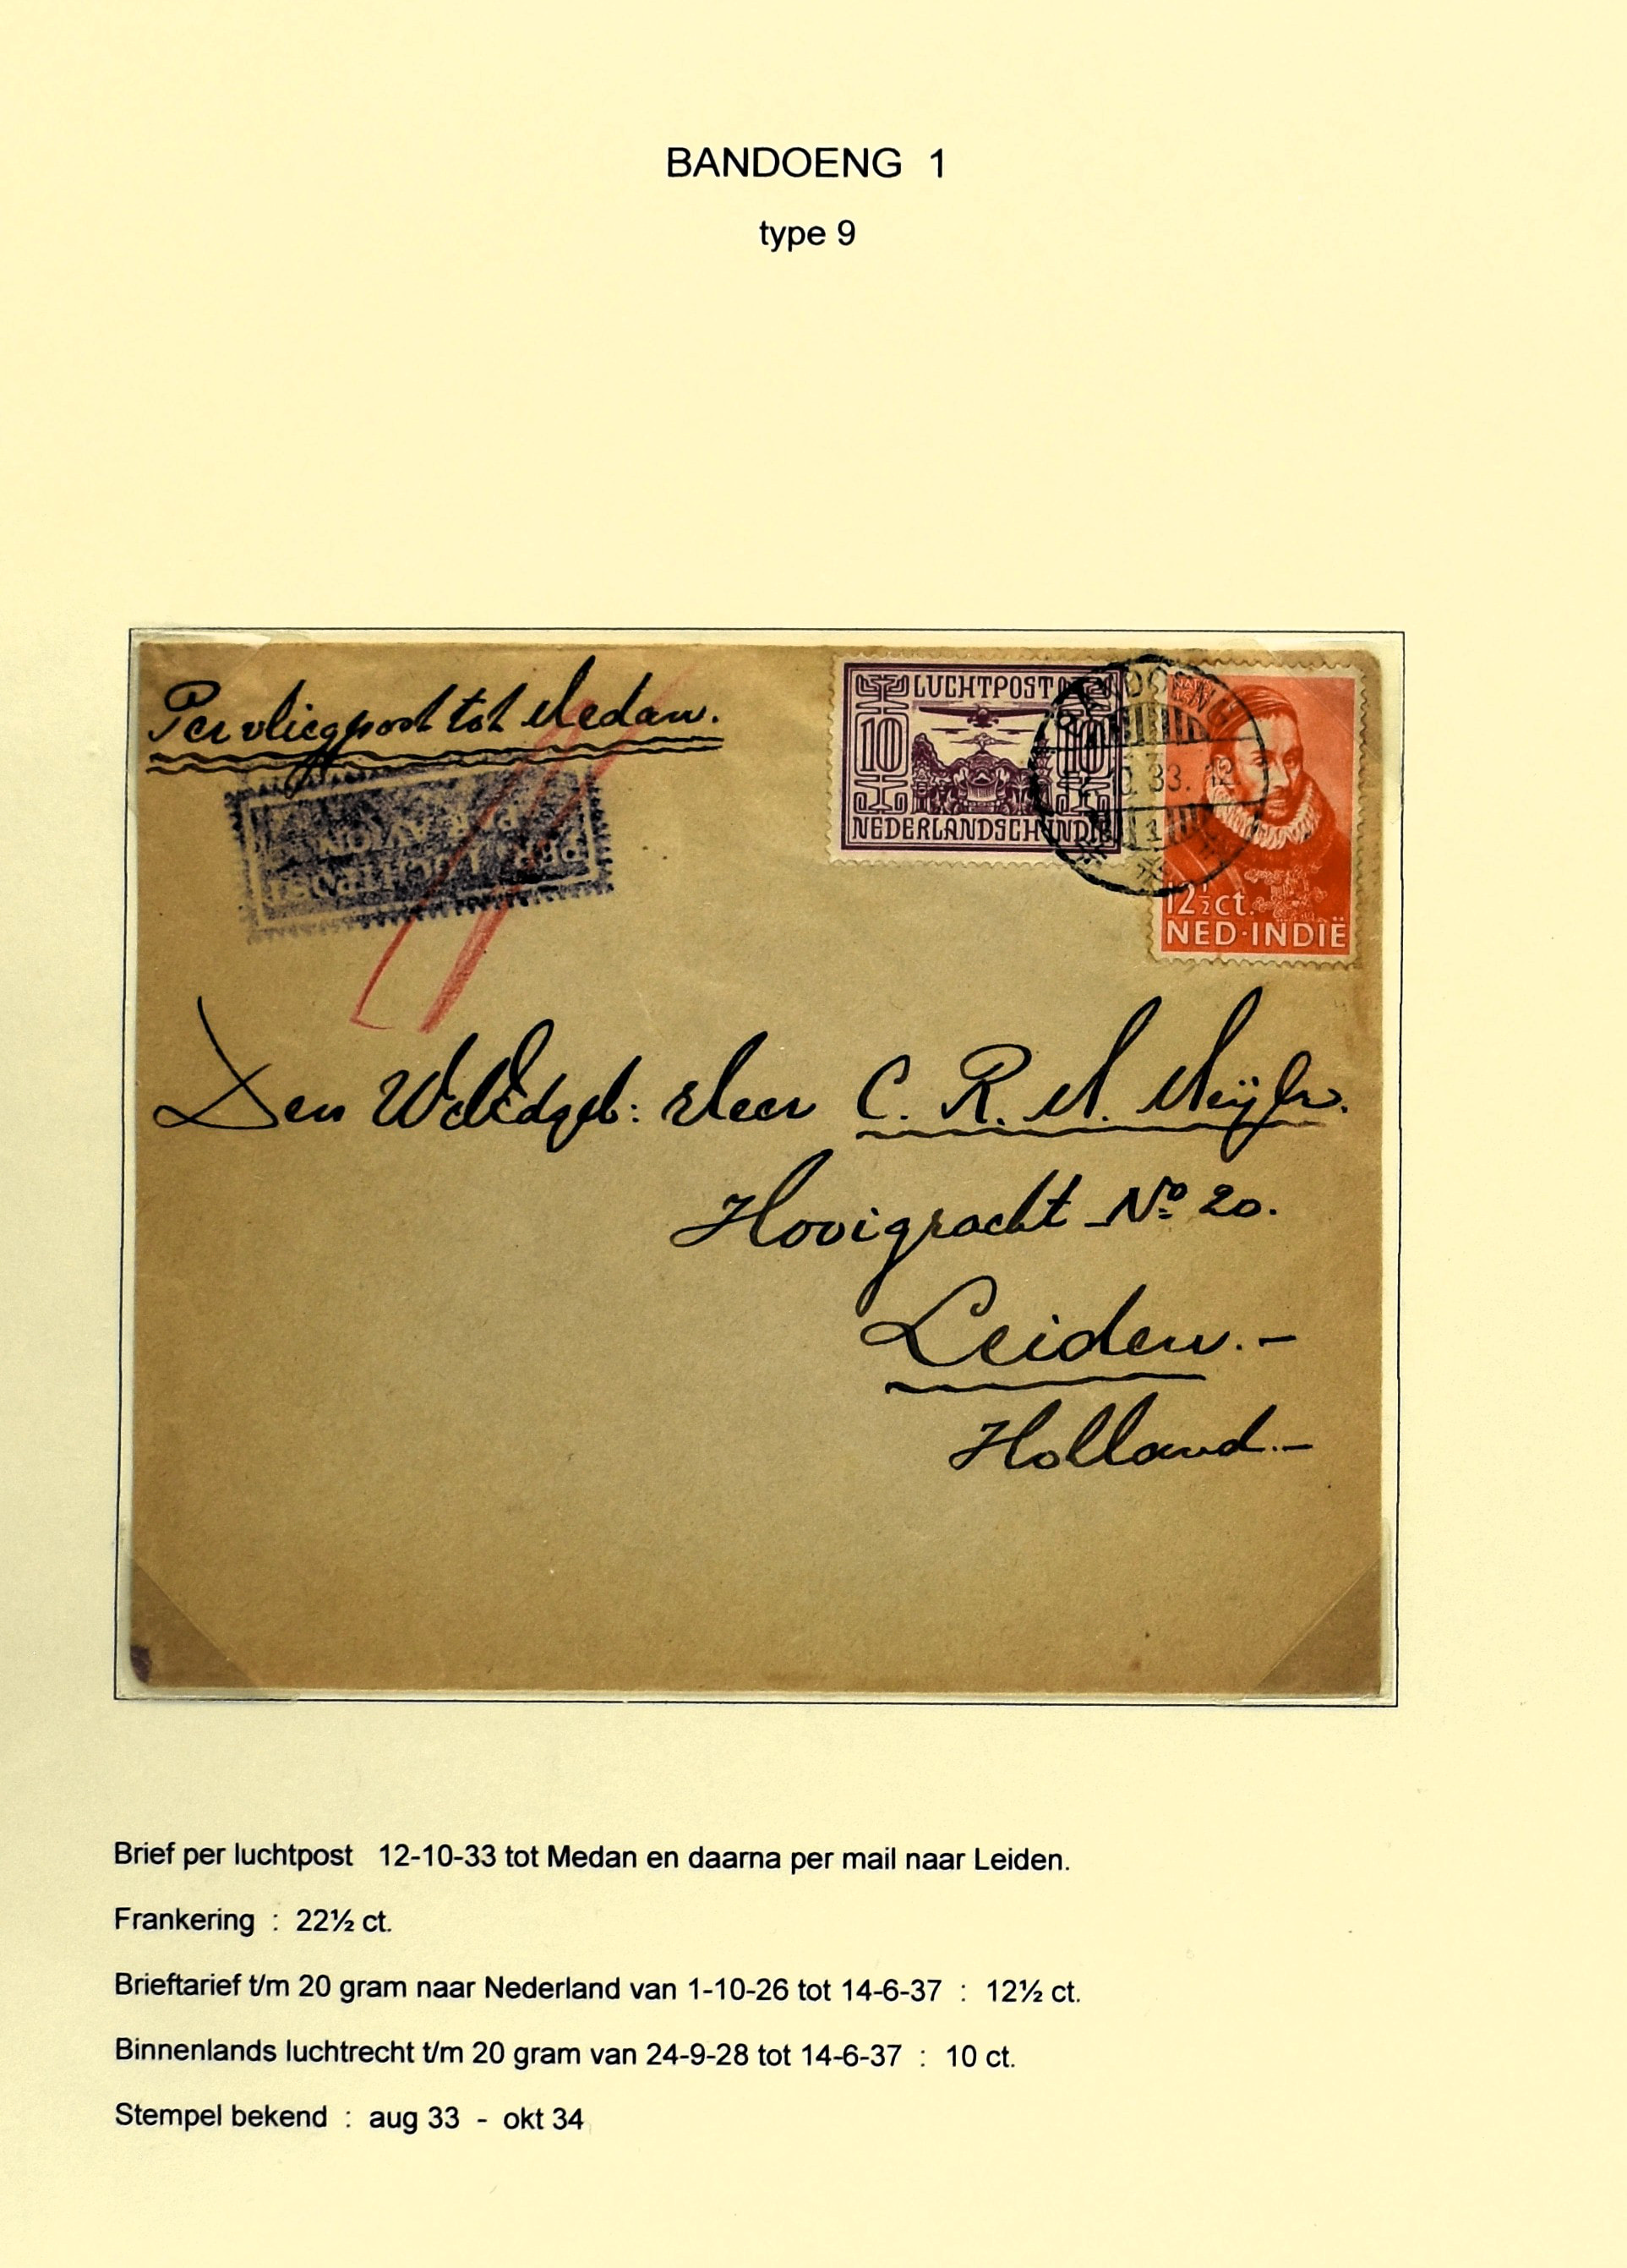 BANDOENG 1
type 9
Per vliegpost tot Medan.
PAR AVION
PER LUCHTPOST
LUCHTPOST
10 10
NEDERLANDSCH INDIE
BANDOENG
10.33.
1
12½ct.
NED·INDIË
Den WelEdgeb: Heer C. R. M. Meijer.
Hooigracht No 20.
Leiden.-
Holland.-
Brief per luchtpost 12-10-33 tot Medan en daarna per mail naar Leiden.
Frankering : 22½ ct.
Brieftarief t/m 20 gram naar Nederland van 1-10-26 tot 14-6-37 : 12½ ct.
Binnenlands luchtrecht t/m 20 gram van 24-9-28 tot 14-6-37 : 10 ct.
Stempel bekend : aug 33 - okt 34